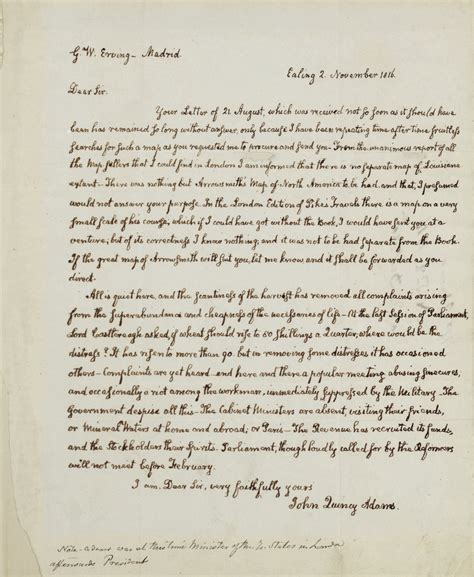 G. W. Erving - Madrid.
Ealing 2. November 1816.
Dear Sir.
Your Letter of 21 August, which was received not so soon as it should have
been has remained so long without answer, only because I have been repeating time after time fruitless
searches for such a map as you requested me to procure and send you - From the unanimous report of all
the Map sellers that I could find in London I am informed that there is no separate map of Louisiana
extant - There was nothing but Arrowsmith's Map of North America to be had, and that, I presumed
would not answer your purpose. In the London Edition of Pike's Travels there is a map on a very
Small scale of his course, which if I could have got without the Book, I would have sent you at a
venture; but of its correctness I know nothing; and it was not to be had separate from the Book.
If the great map of Arrowsmith will suit you, let me know and it shall be forwarded as you
direct.
All is quiet here, and the scantiness of the harvest has removed all complaints arising
from the Superabundance and cheapness of the necessaries of life - At the last Session of Parliament,
Lord Castlereagh asked, if wheat should rise to 80 Shillings a Quarter, where would be the
distress? It has risen to more than 90. but in removing some distresses it has occasioned
others - Complaints are yet heard and here and there a popular meeting abusing sinecures,
and occasionally a riot among the workmen, immediately suppressed by the Military. The
Government despise all this - The Cabinet Ministers are absent, visiting their friends,
or Mineral Waters at home and abroad; or Paris - The Revenue has recruited its funds,
and the Stockholders their Spirits. Parliament, though loudly called for by the Reformers
will not meet before February.
I am, Dear Sir, very faithfully yours
John Quincy Adams.
Note - Adams was at this time Minister of the U. States in London
afterwards President